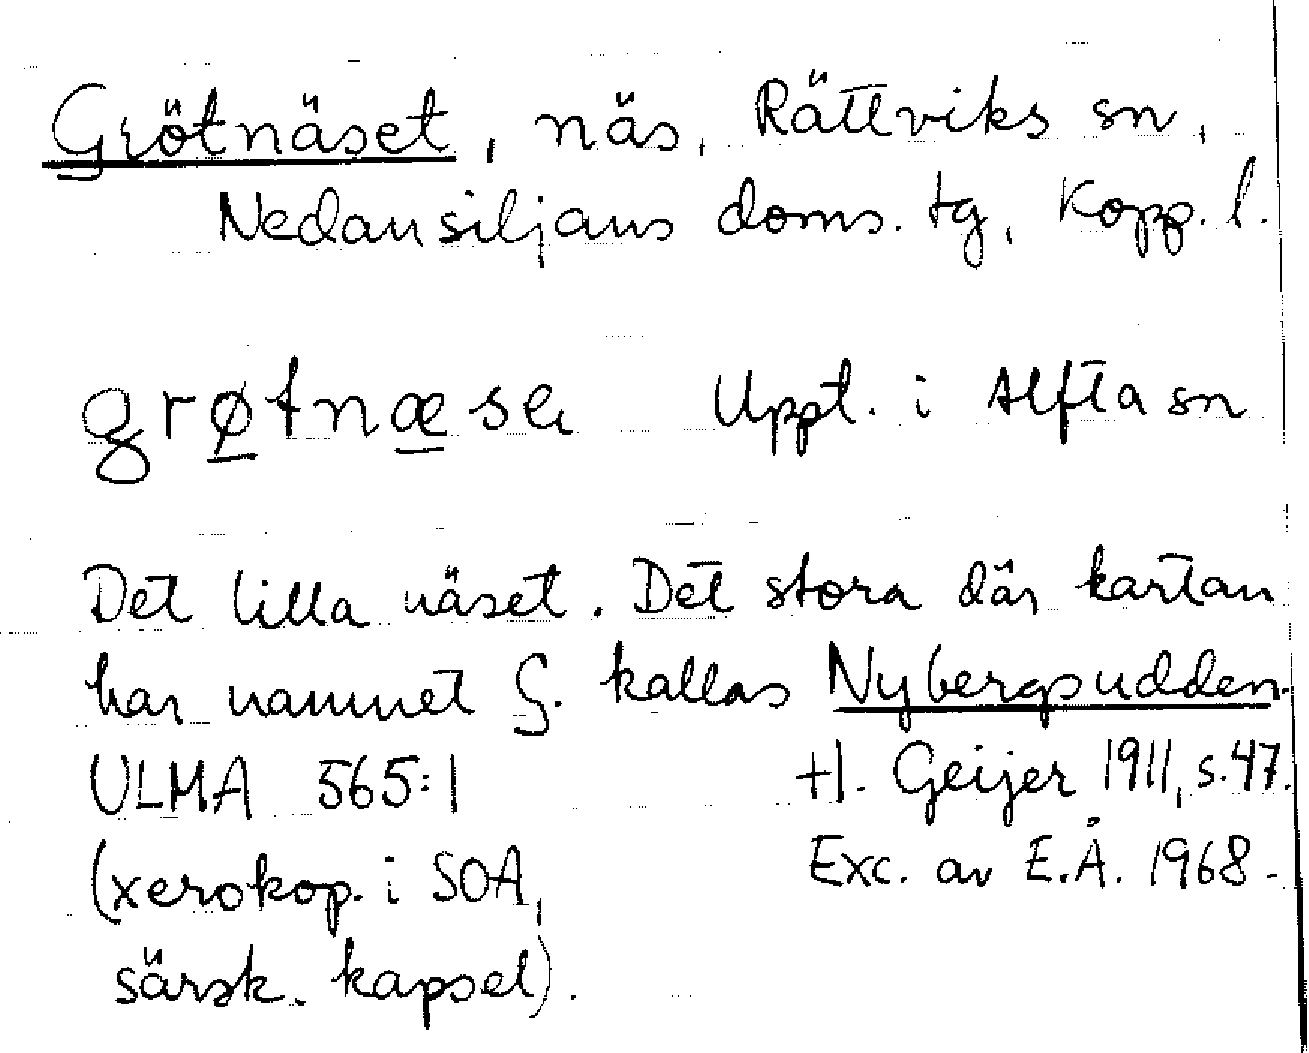 Grötnäset, näs, Rättviks sn,
Nedansiljans doms. tg, Kopp. l.
grøtnæse Uppt. i Alfta sn
Det lilla näset. Det stora där kartan
har namnet G. kallas Nybergsudden.
ULMA 565:1 H. Geijer 1911, s. 47.
(xerokop. i SOA, Exc. av E.Å. 1968.
särsk. kapsel).